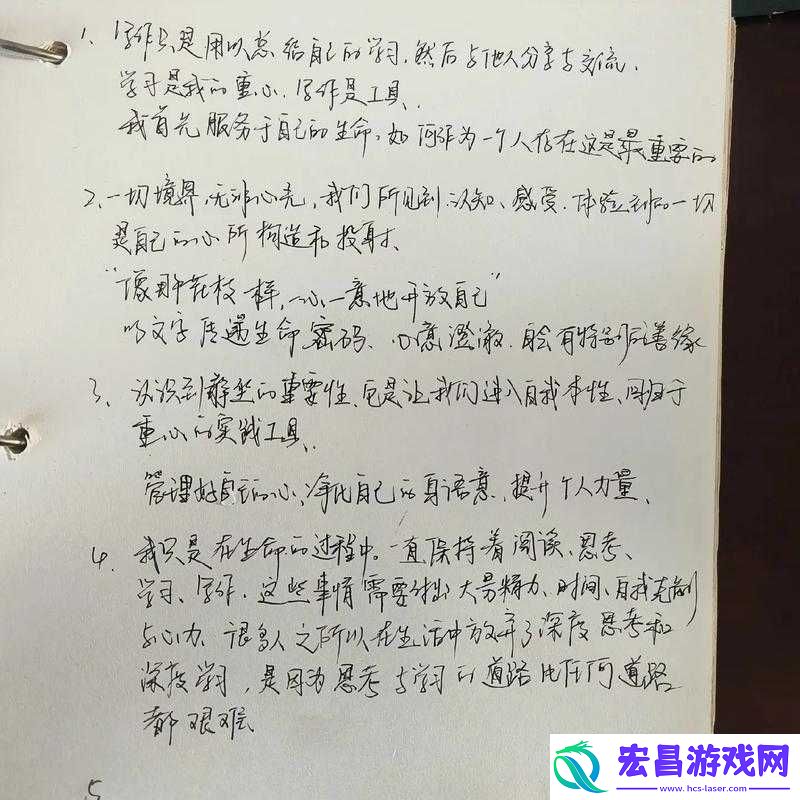 1、写作只是用以总结自己的学习，然后与他人分享与交流，
学习是我的重心，写作是工具、
我首先服务于自己的生命，如何作为一个人存在这是最重要的
2、一切境界，无非心亮，我们所见到、认知、感受、体验到的一切
是自己的心所构造和投射、
“像那花枝一样，一心一意地开放自己”
以文字传递生命密码、心意澄澈，自会有特别的善缘
3、认识到静坐的重要性，它是让我们进入自我本性、回归于
重心的实践工具、
管理好自己的心、净化自己的身语意，提升个人力量、
4、我只是在生命的过程中，一直保持着阅读、思考、
学习、写作，这些事情需要付出大量精力、时间、自我克制
与心力、很多人之所以在生活中放弃了深度思考和
深度学习，是因为思考与学习的道路比任何道路
都艰难
5
宏昌游戏网
www.hcs-laser.com